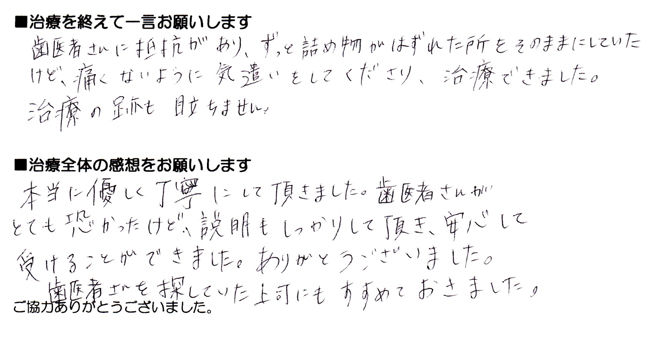 ■治療を終えて一言お願いします
歯医者さんに抵抗があり、ずっと詰め物がはずれた所をそのままにしていた
けど、痛くないように気遣いをしてくださり、治療できました。
治療の跡も目立ちません。
■治療全体の感想をお願いします
本当に優しく丁寧にして頂きました。歯医者さんが
とても恐かったけど、説明もしっかりして頂き、安心して
受けることができました。ありがとうございました。
歯医者さんを探していた上司にもすすめておきました。
ご協力ありがとうございました。